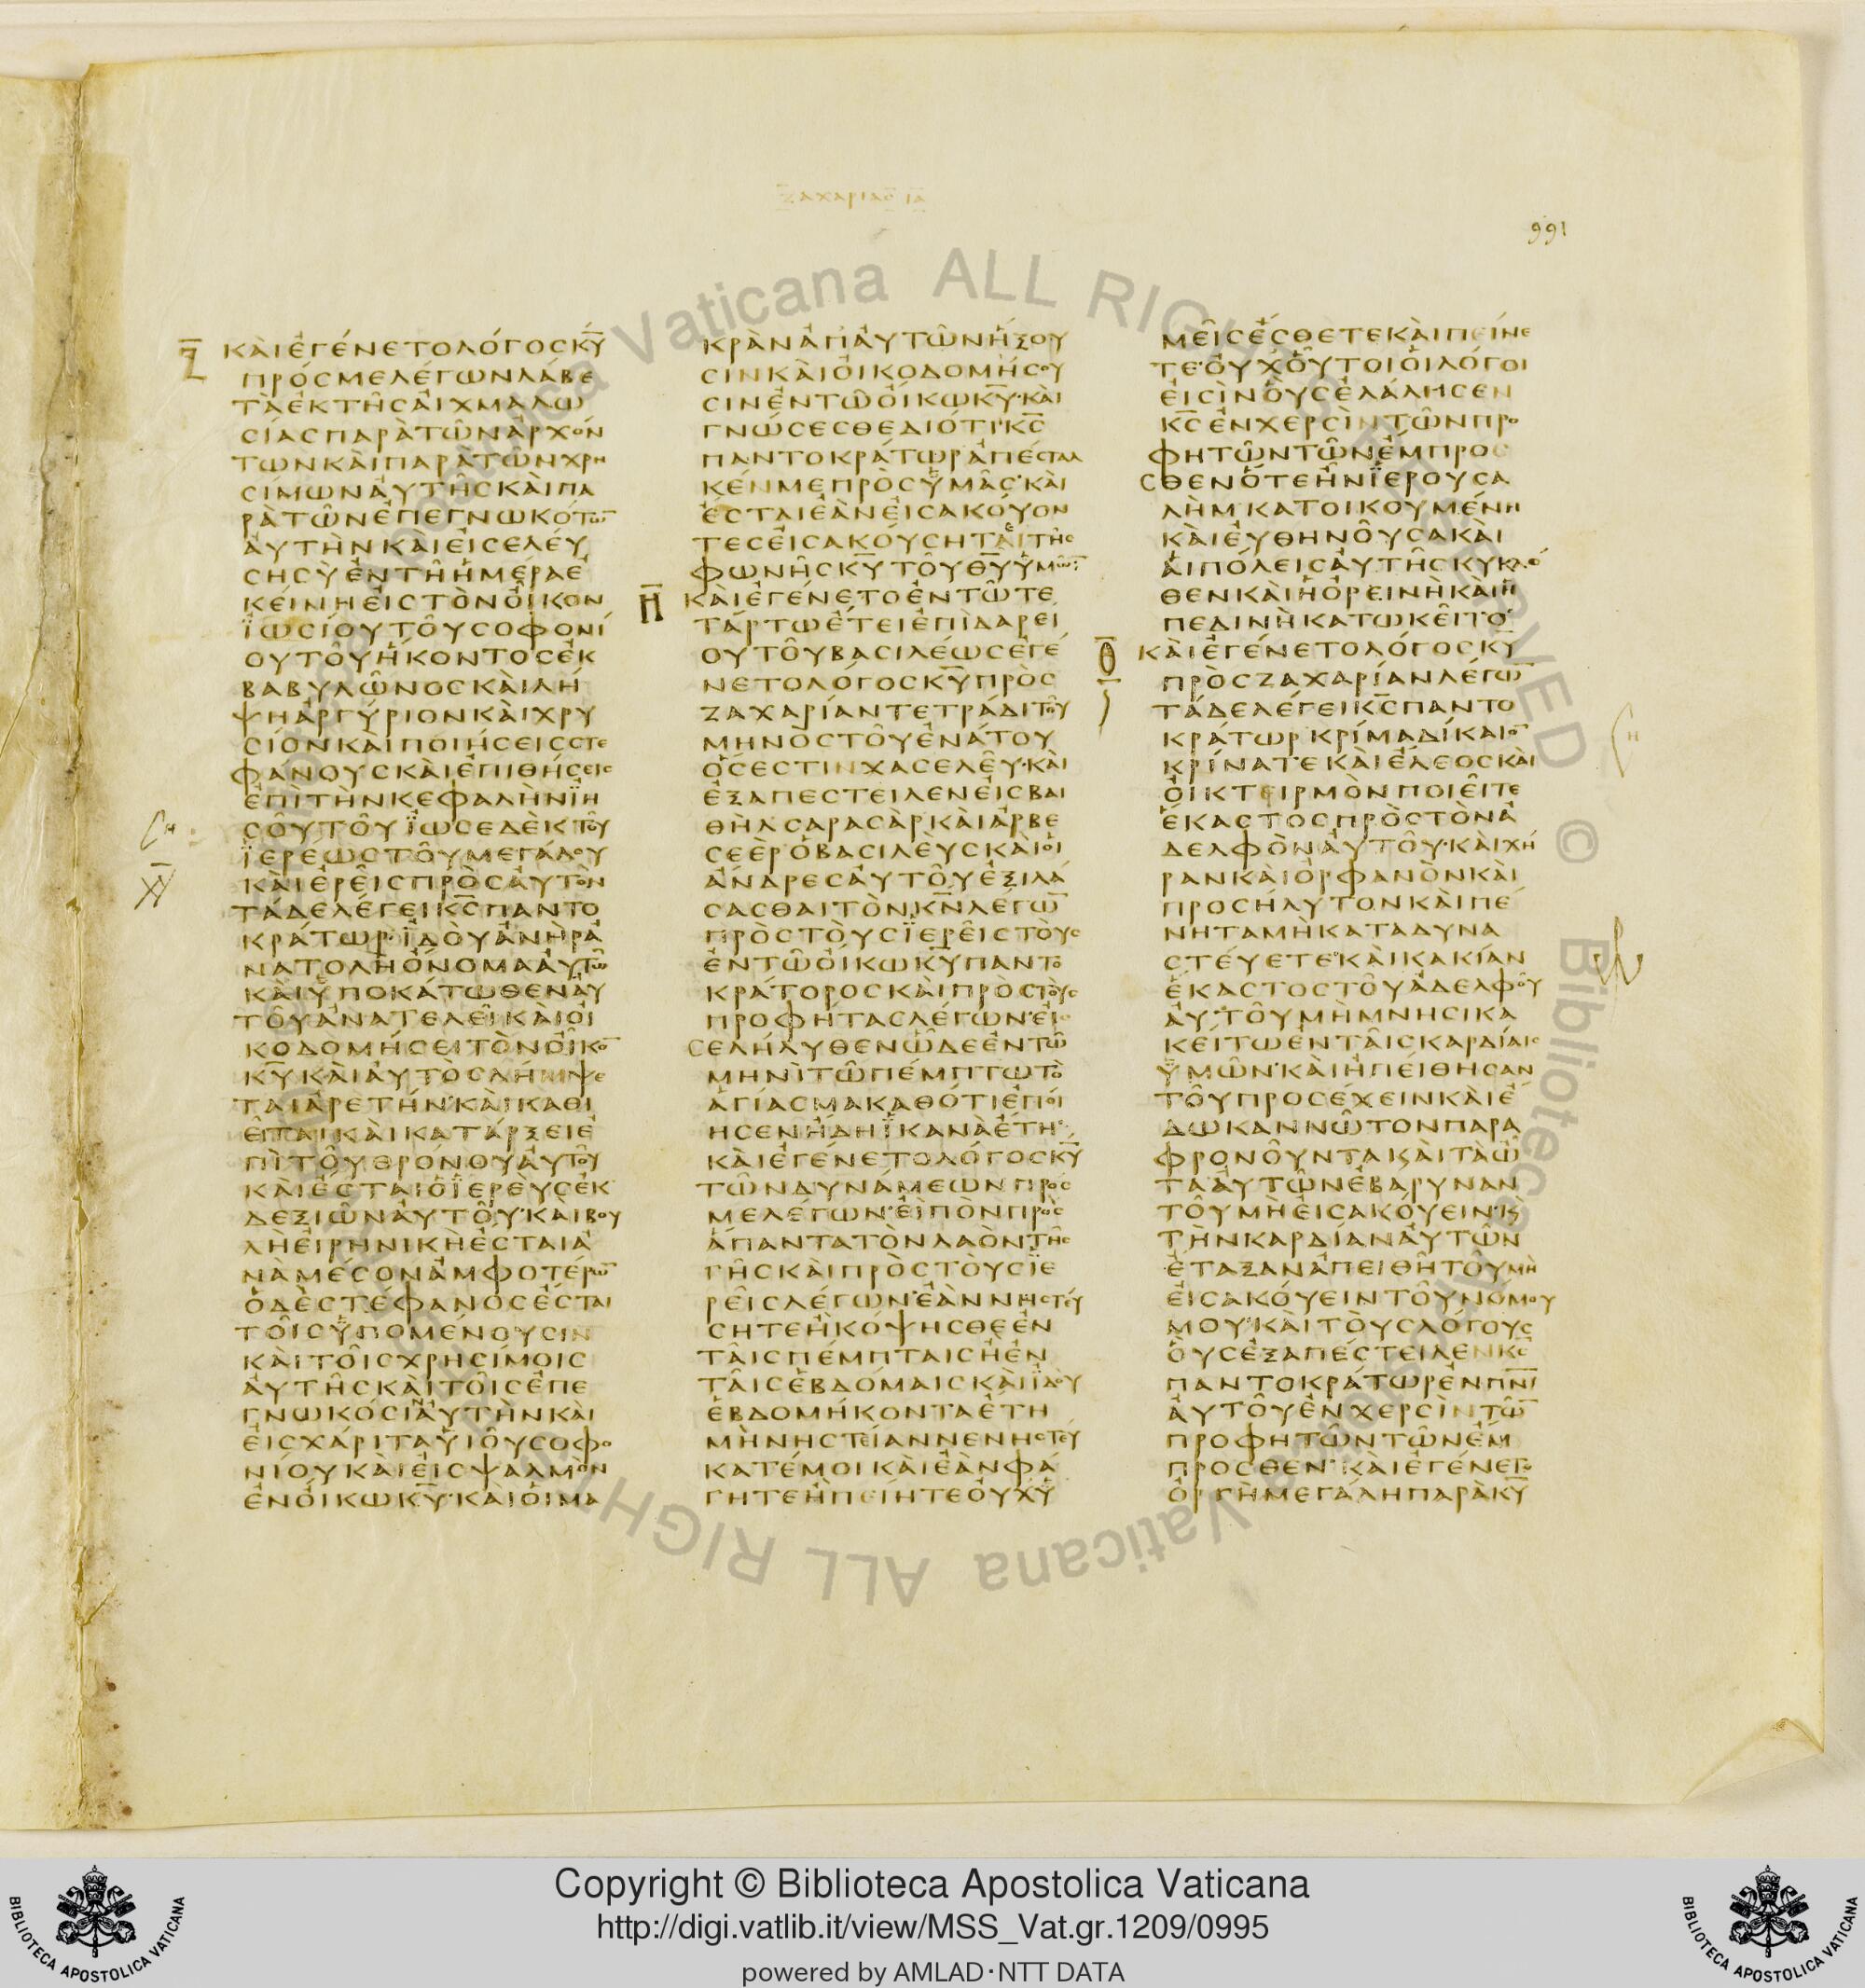 ΖΑΧΑΡΙΑΣ ΙΑ
991
Ζ ΚΑΙΕΓΕΝΕΤΟΛΟΓΟСΚΥ
ΠΡΟСΜΕΛΕΓΩΝΛΑΒΕ
ΤΑΕΚΤΗСΑΙΧΜΑΛΩ
СΙΑСΠΑΡΑΤΩΝΑΡΧΟΝ
ΤΩΝΚΑΙΠΑΡΑΤΩΝΧΡΗ
СΙΜΩΝΑΥΤΗСΚΑΙΠΑ
ΡΑΤΩΝΕΠΕΓΝΩΚΟΤΩ̅
ΑΥΤΗΝΚΑΙΕΙСΕΛΕΥ
СΗСΥΕΝΤΗΗΜΕΡΑΕ
ΚΕΙΝΗΕΙСΤΟΝΟΙΚΟΝ
ΪΩСΙΟΥΤΟΥСΟΦΟΝΙ
ΟΥΤΟΥΗΚΟΝΤΟСΕΚ
ΒΑΒΥΛΩΝΟСΚΑΙΛΗ
ΨΗΑΡΓΥΡΙΟΝΚΑΙΧΡΥ
СΙΟΝΚΑΙΠΟΙΗСΕΙССΤΕ
ΦΑΝΟΥСΚΑΙΕΠΙΘΗСΕΙС
ΕΠΙΤΗΝΚΕΦΑΛΗΝΪΗ
СΟΥΤΟΥΪΩСΕΔΕΚΤΟΥ
ΪΕΡΕΩСΤΟΥΜΕΓΑΛΟΥ
ΚΑΙΕΡΕΙСΠΡΟСΑΥΤΟΝ
ΤΑΔΕΛΕΓΕΙΚ̅С̅ΠΑΝΤΟ
ΚΡΑΤΩΡ·ΪΔΟΥΑΝΗΡΑ
ΝΑΤΟΛΗΟΝΟΜΑΑΥΤΩ
ΚΑΙΥΠΟΚΑΤΩΘΕΝΑΥ
ΤΟΥΑΝΑΤΕΛΕΙΚΑΙΟΙ
ΚΟΔΟΜΗСΕΙΤΟΝΟΙΚΟ̅
Κ̅Υ̅ΚΑΙΑΥΤΟСΛΗΜΨΕ
ΤΑΙΑΡΕΤΗΝ·ΚΑΙΚΑΘΙ
ΕΙΤΑΙΚΑΙΚΑΤΑΡΞΕΙΕ
ΠΙΤΟΥΘΡΟΝΟΥΑΥΤΟΥ
ΚΑΙΕСΤΑΙΟΪΕΡΕΥСΕΚ
ΔΕΞΙΩΝΑΥΤΟΥ·ΚΑΙΒΟΥ
ΛΗΕΙΡΗΝΙΚΗΕСΤΑΙΑ
ΝΑΜΕСΟΝΑΜΦΟΤΕΡΩ̅
ΟΔΕСΤΕΦΑΝΟСΕСΤΑΙ
ΤΟΙСΥΠΟΜΕΝΟΥСΙΝ
ΚΑΙΤΟΙСΧΡΗСΙΜΟΙС
ΑΥΤΗСΚΑΙΤΟΙСΕΠΕ
ΓΝΩΚΟСΙΑΥΤΗΝΚΑΙ
ΕΙСΧΑΡΙΤΑΥΙΟΥСΟΦΟ
ΝΙΟΥΚΑΙΕΙСΨΑΛΜΟΝ
ΕΝΟΙΚΩΚ̅Υ̅·ΚΑΙΟΙΜΑ
ΚΡΑΝΑΠΑΥΤΩΝΗΞΟΥ
СΙΝΚΑΙΟΙΚΟΔΟΜΗСΟΥ
СΙΝΕΝΤΩΟΙΚΩΚ̅Υ̅·ΚΑΙ
ΓΝΩСΕСΘΕΔΙΟΤΙΚ̅С̅
ΠΑΝΤΟΚΡΑΤΩΡΑΠΕСΤΑΛ
ΚΕΝΜΕΠΡΟСΥΜΑС·ΚΑΙ
ΕСΤΑΙΕΑΝΕΙСΑΚΟΥΟΝ
ΤΕСΕΙСΑΚΟΥСΗΤΑΙΤΗС
ΦΩΝΗСΚ̅Υ̅ΤΟΥΘ̅Υ̅ΥΜΩ̅
Η ΚΑΙΕΓΕΝΕΤΟΕΝΤΩΤΕ
ΤΑΡΤΩΕΤΕΙΕΠΙΔΑΡΕΙ
ΟΥΤΟΥΒΑСΙΛΕΩСΕΓΕ
ΝΕΤΟΛΟΓΟСΚ̅Υ̅ΠΡΟС
ΖΑΧΑΡΙΑΝΤΕΤΡΑΔΙΤΟΥ
ΜΗΝΟСΤΟΥΕΝΑΤΟΥ
ΟСΕСΤΙΝΧΑСΕΛΕΥ·ΚΑΙ
ΕΞΑΠΕСΤΕΙΛΕΝΕΙСΒΑΙ
ΘΗΛСΑΡΑСΑΡΚΑΙΑΡΒΕ
СΕΕΡΟΒΑСΙΛΕΥСΚΑΙΟΙ
ΑΝΔΡΕСΑΥΤΟΥΕΞΙΛΑ
СΑСΘΑΙΤΟΝΚ̅Ν̅ΛΕΓΩ̅
ΠΡΟСΤΟΥСΪΕΡΕΙСΤΟΥС
ΕΝΤΩΟΙΚΩΚ̅Υ̅ΠΑΝΤΟ
ΚΡΑΤΟΡΟСΚΑΙΠΡΟСΤΟΥС
ΠΡΟΦΗΤΑСΛΕΓΩΝ·ΕΙС
СΕΛΗΛΥΘΕΝΩΔΕΕΝΤΩ
ΜΗΝΙΤΩΠΕΜΠΤΩΤΟ
ΑΓΙΑСΜΑΚΑΘΟΤΙΕΠΟΙ
ΗСΕΝΗΔΗΪΚΑΝΑΕΤΗ·
ΚΑΙΕΓΕΝΕΤΟΛΟΓΟСΚ̅Υ̅
ΤΩΝΔΥΝΑΜΕΩΝΠΡΟС
ΜΕΛΕΓΩΝ·ΕΙΠΟΝΠΡΟС
ΑΠΑΝΤΑΤΟΝΛΑΟΝΤΗС
ΓΗСΚΑΙΠΡΟСΤΟΥСΪΕ
ΡΕΙСΛΕΓΩΝ·ΕΑΝΝΗСΤΕΥ
СΗΤΕΗΚΟΨΗСΘΕΕΝ
ΤΑΙСΠΕΜΠΤΑΙСΗΕΝ
ΤΑΙСΕΒΔΟΜΑΙСΚΑΙΪΔΟΥ
ΕΒΔΟΜΗΚΟΝΤΑΕΤΗ
ΜΗΝΗСΤΕΙΑΝΝΕΝΗСΤΕΥ
ΚΑΤΕΜΟΙΚΑΙΕΑΝΦΑ
ΓΗΤΕΗΠΕΙΗΤΕΟΥΧΥ
ΜΕΙСΕСΘΕΤΕΚΑΙΠΕΙΝΕ
ΤΕ·ΟΥΧΟΥΤΟΙΟΙΛΟΓΟΙ
ΕΙСΙΝΟΥСΕΛΑΛΗСΕΝ
Κ̅С̅ΕΝΧΕΡСΙΝΤΩΝΠΡΟ
ΦΗΤΩΝΤΩΝΕΜΠΡΟС
СΘΕΝΟΤΕΗΝΪΕΡΟΥСΑ
ΛΗΜΚΑΤΟΙΚΟΥΜΕΝΗ
ΚΑΙΕΥΘΗΝΟΥСΑΚΑΙ
ΑΙΠΟΛΕΙСΑΥΤΗСΚΥΚΛΟ
ΘΕΝΚΑΙΗΟΡΕΙΝΗΚΑΙΗ
ΠΕΔΙΝΗΚΑΤΩΚΕΙΤΟ
Θ ΚΑΙΕΓΕΝΕΤΟΛΟΓΟСΚ̅Υ̅
ΠΡΟСΖΑΧΑΡΙΑΝΛΕΓΩ̅
ΤΑΔΕΛΕΓΕΙΚ̅С̅ΠΑΝΤΟ
ΚΡΑΤΩΡ·ΚΡΙΜΑΔΙΚΑΙΟ̅
ΚΡΙΝΑΤΕΚΑΙΕΛΕΟСΚΑΙ
ΟΙΚΤΕΙΡΜΟΝΠΟΙΕΙΤΕ
ΕΚΑСΤΟСΠΡΟСΤΟΝΑ
ΔΕΛΦΟΝΑΥΤΟΥ·ΚΑΙΧΗ
ΡΑΝΚΑΙΟΡΦΑΝΟΝΚΑΙ
ΠΡΟСΗΛΥΤΟΝΚΑΙΠΕ
ΝΗΤΑΜΗΚΑΤΑΔΥΝΑ
СΤΕΥΕΤΕ·ΚΑΙΚΑΚΙΑΝ
ΕΚΑСΤΟСΤΟΥΑΔΕΛΦΟΥ
ΑΥΤΟΥΜΗΜΝΗСΙΚΑ
ΚΕΙΤΩΕΝΤΑΙСΚΑΡΔΙΑΙС
ΥΜΩΝ·ΚΑΙΗΠΕΙΘΗСΑΝ
ΤΟΥΠΡΟСΕΧΕΙΝΚΑΙΕ
ΔΩΚΑΝΝΩΤΟΝΠΑΡΑ
ΦΡΟΝΟΥΝΤΑΚΑΙΤΑΩ
ΤΑΑΥΤΩΝΕΒΑΡΥΝΑΝ
ΤΟΥΜΗΕΙСΑΚΟΥΕΙΝ·Ϗ
ΤΗΝΚΑΡΔΙΑΝΑΥΤΩΝ
ΕΤΑΞΑΝΑΠΕΙΘΗΤΟΥΜΗ
ΕΙСΑΚΟΥΕΙΝΤΟΥΝΟΜΟΥ
ΜΟΥ·ΚΑΙΤΟΥСΛΟΓΟΥС
ΟΥСΕΞΑΠΕСΤΕΙΛΕΝΚ̅С̅
ΠΑΝΤΟΚΡΑΤΩΡΕΝΠ̅Ν̅Ι̅
ΑΥΤΟΥΕΝΧΕΡСΙΝΤΩ̅
ΠΡΟΦΗΤΩΝΤΩΝΕΜ
ΠΡΟСΘΕΝ·ΚΑΙΕΓΕΝΕΤΟ
ΟΡΓΗΜΕΓΑΛΗΠΑΡΑΚ̅Υ̅
Copyright © Biblioteca Apostolica Vaticana
http://digi.vatlib.it/view/MSS_Vat.gr.1209/0995
powered by AMLAD·NTT DATA
BIBLIOTECA APOSTOLICA VATICANA
BIBLIOTECA APOSTOLICA VATICANA